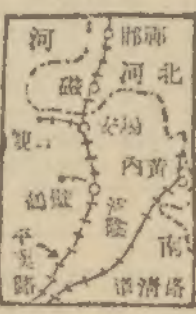 河
邯鄲
磁
河北
安陽
觀台
內黃
鶴壁
湯陰
南
平漢路
道清路